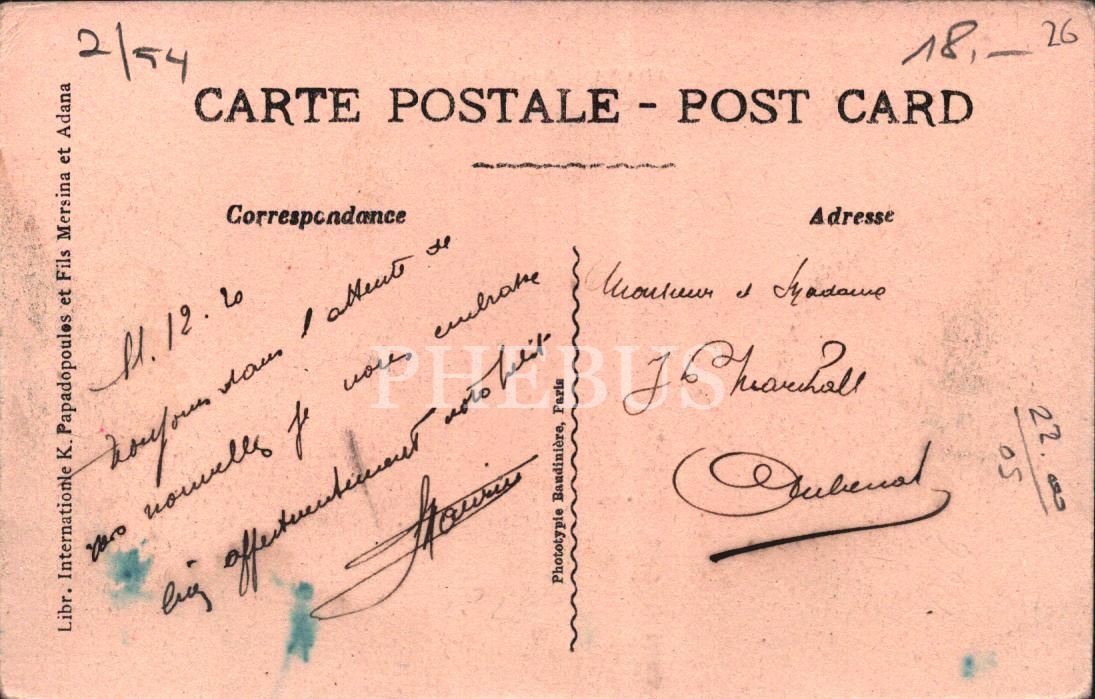 2/54
18,—
26
CARTE POSTALE - POST CARD
Correspondance
Adresse
Libr. Internationle K. Papadopoulos et Fils Mersina et Adana
11.12.20
Toujours dans l'attente de
vos nouvelles je vous embrasse
bien affectueusement votre petit
Maurice
Phototypie Baudinière, Paris
Monsieur et Madame
Marchall
Aubenas
22.000
05
PHEBUS